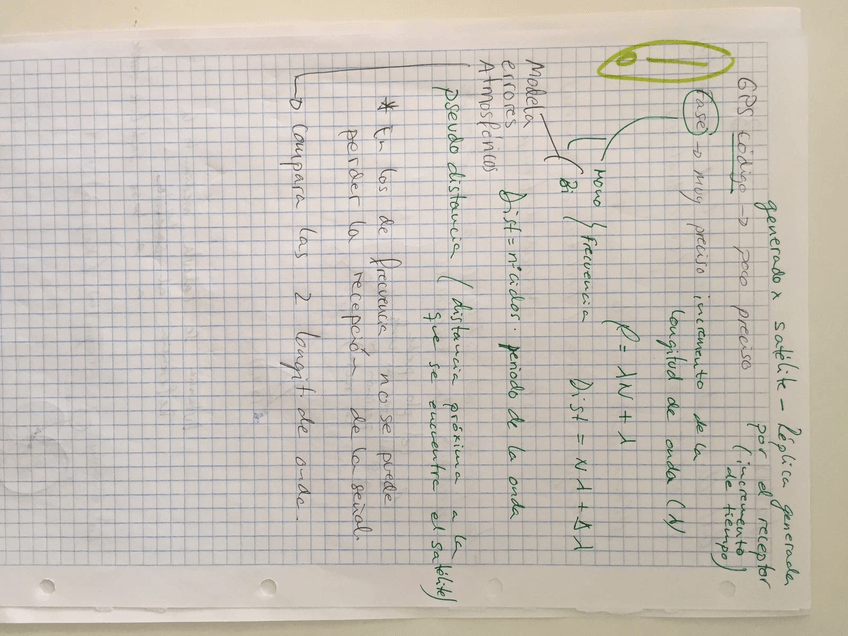 generado x satélite - Réplica generada
por el receptor
(incremento
de tiempo)
GPS código → poco preciso
Fase → muy preciso, incremento de la
longitud de onda (λ)
R = λN + λ
Mono
Bi
frecuencia
Dist = Nλ + Δλ
Modela
errores
Atmosféricos
Dist = nº ciclos . periodo de la onda
pseudo distancia (distancia próxima a la
que se encuentra el satélite)
* En los de frecuencia no se puede
perder la recepción de la señal.
→ Compara las 2 longit. de onda.